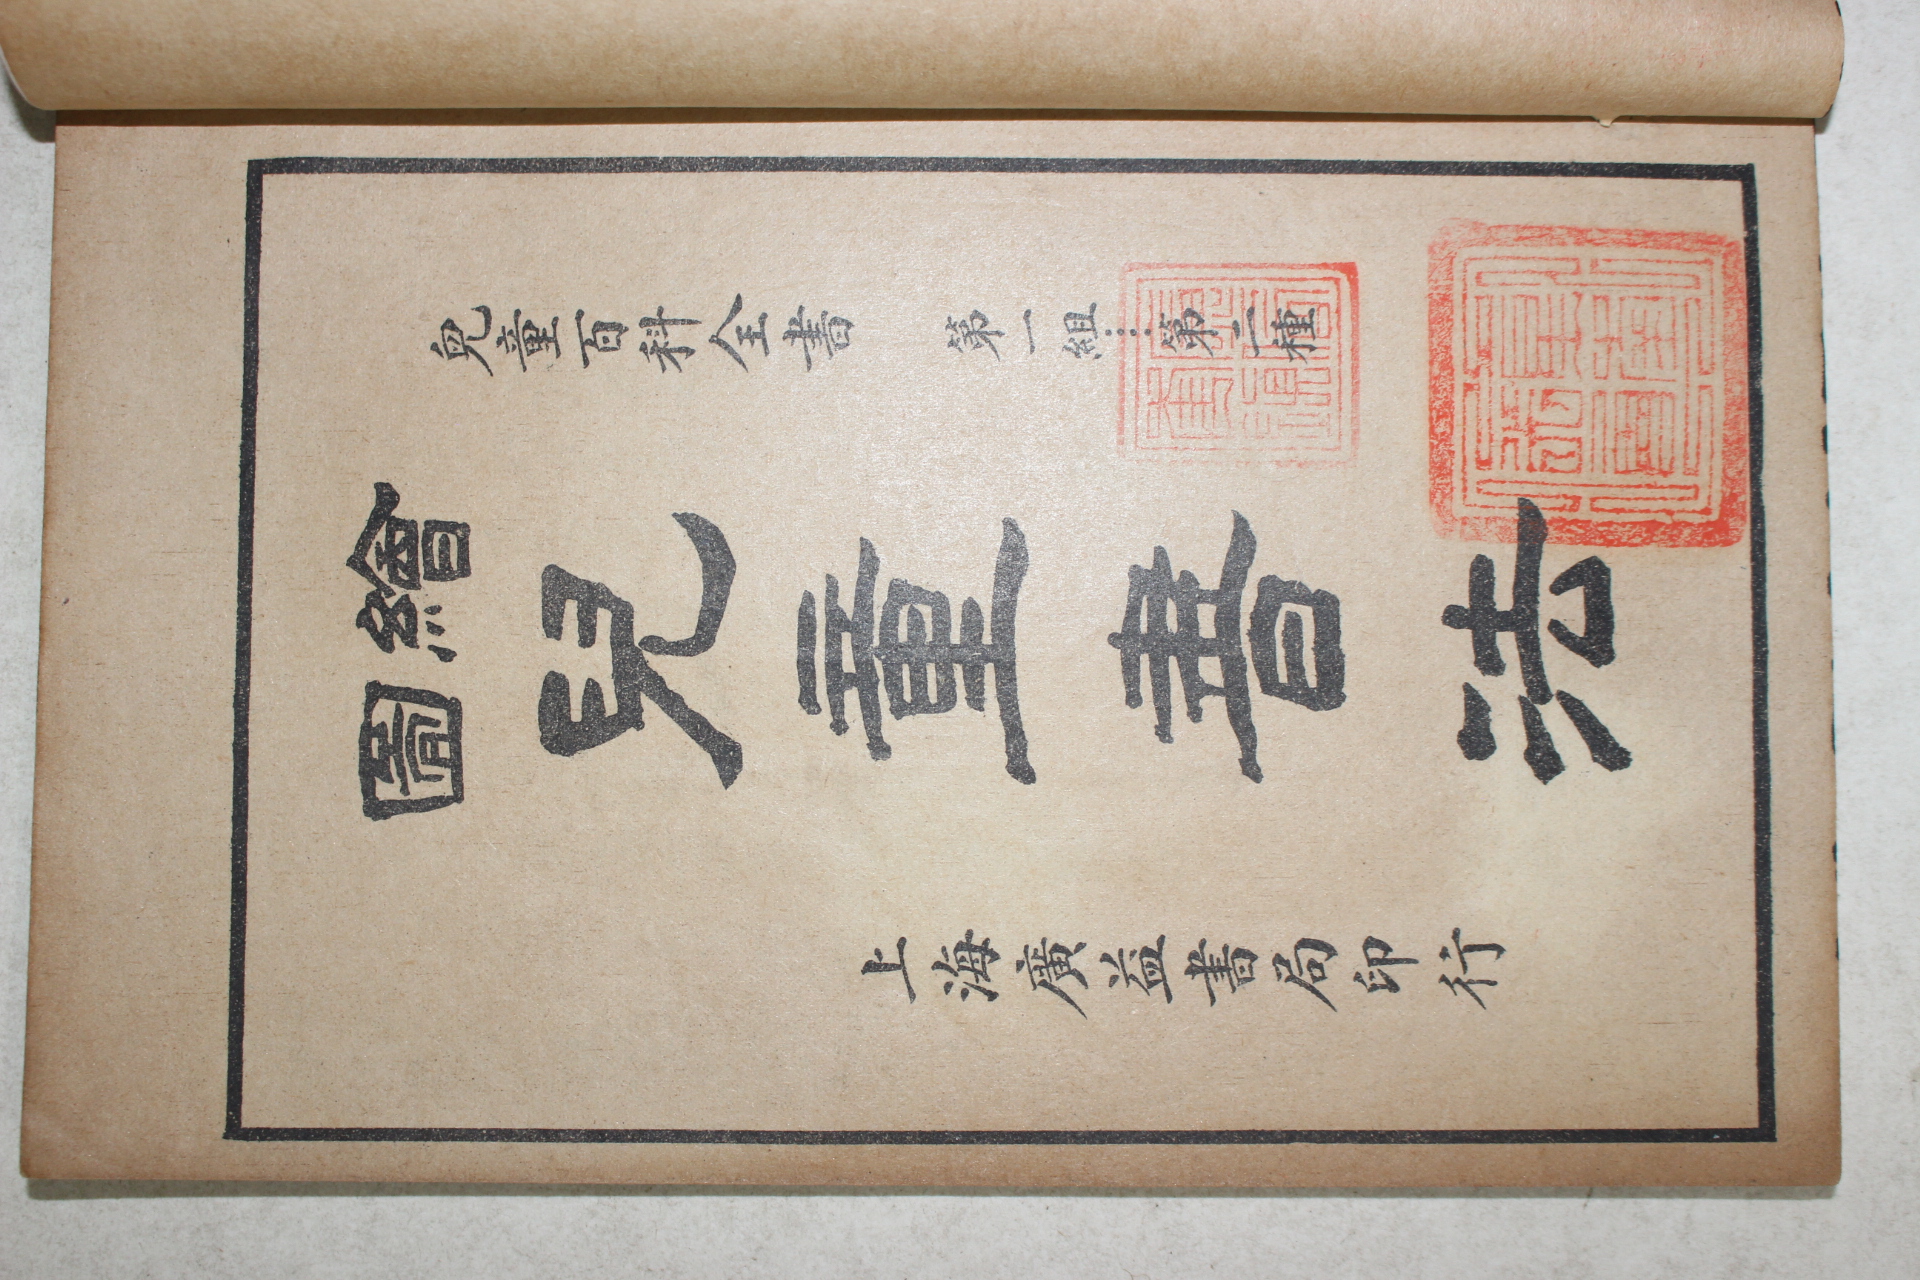 兒童百科全書　第一組……第二種
繪圖
兒童書法
上海廣益書局印行